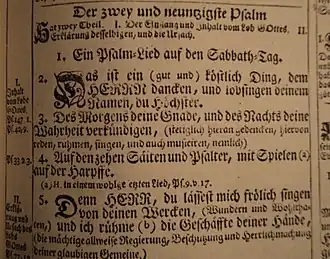 Der zwey und neuntzigste Psalm
Hat zwey Theil. I. Der Eingang und Inhalt vom Lob GOttes. II.
Erklärung desselbigen, und die Ursach.
I.
1. Ein Psalm-Lied auf den Sabbath-Tag.
2. Das ist ein (gut und) köstlich Ding, dem
HERRN dancken, und lobsingen deinem
Namen, du Höchster.
3. Des Morgens deine Gnade, und des Nachts deine
Wahrheit verkündigen, hieran gedencken, hiervon
reden, ruhmen, singen, und auch musiciren, nemlich)
4. Auf den zehen Saiten und Psalter, mit Spielen (a)
auf der Harpffe.
(a) H. in einem
Ps. 9. v. 17.
5. Denn HERR, du lässest mich frölich singen
von deinen Wercken, (Wundern und
und ich rühme (b) die Geschäffte deiner Hände,
(die mächtige allweise Regierung, Beschützung und Herrlichmachung
deiner glaubigen Gemeine.)
I.
Inhalt
vom Lobe
GOttes.
Ps. 33. 2
II.